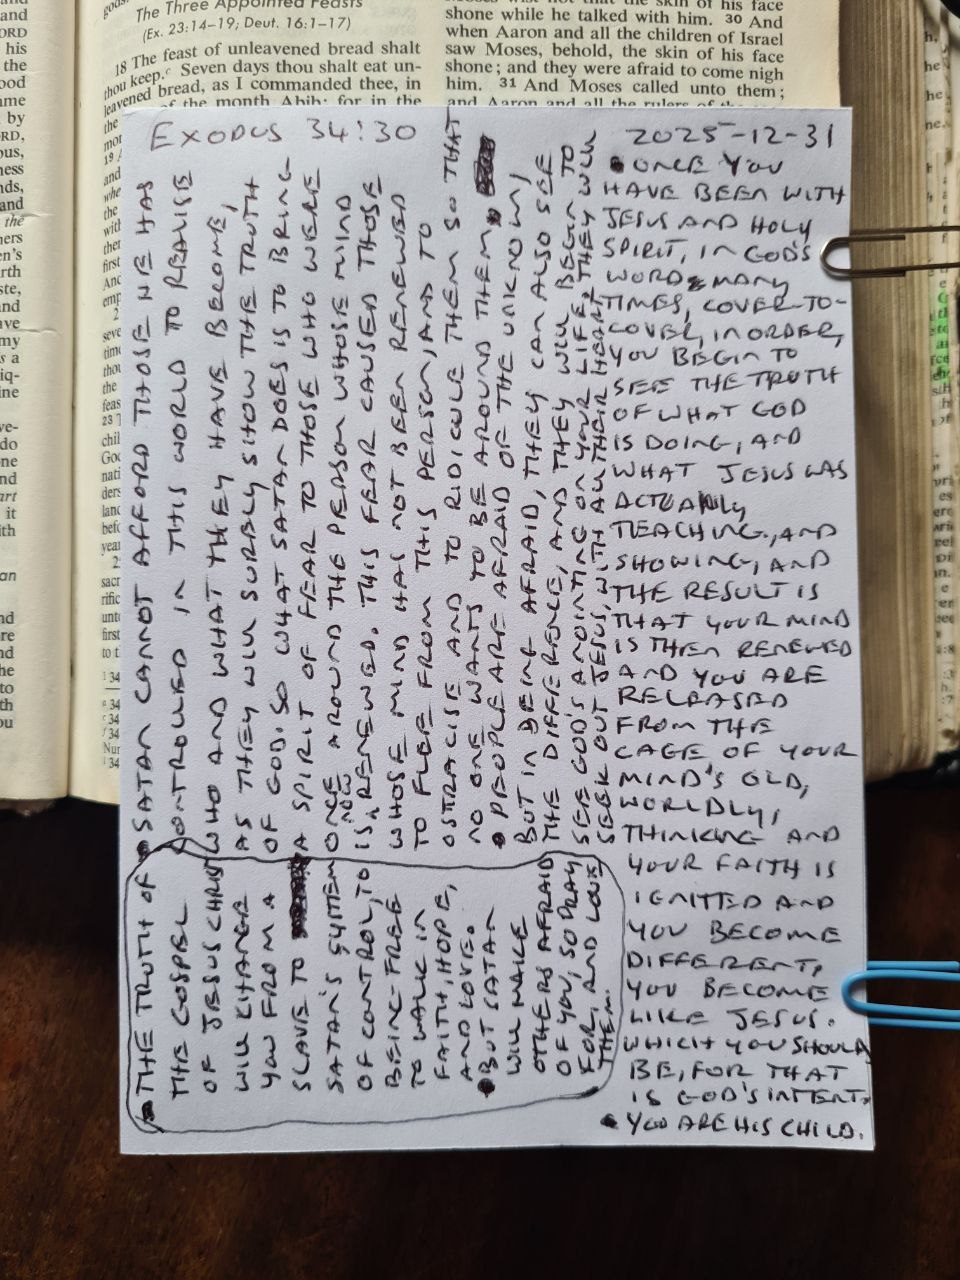 The Three Appointed Feasts
(Ex. 23:14–19; Deut. 16:1–17)
18 The feast of unleavened bread shalt
thou keep. Seven days thou shalt eat un-
leavened bread, as I commanded thee, in
of the month Abib: for in the
shone while he talked with him. 30 And
when Aaron and all the children of Israel
saw Moses, behold, the skin of his face
shone; and they were afraid to come nigh
him. 31 And Moses called unto them;
and Aaron and all the rulers of the
EXODUS 34:30
2025-12-31
• ONCE YOU
HAVE BEEN WITH
JESUS AND HOLY
SPIRIT, IN GOD'S
WORD, MANY
TIMES, COVER-TO-
COVER, IN ORDER,
YOU BEGIN TO
SEE THE TRUTH
OF WHAT GOD
IS DOING, AND
WHAT JESUS WAS
ACTUALLY
TEACHING, AND
SHOWING, AND
THE RESULT IS
THAT YOUR MIND
IS THEN RENEWED
AND YOU ARE
RELEASED
FROM THE
CAGE OF YOUR
MIND'S OLD,
WORLDLY,
THINKING AND
YOUR FAITH IS
IGNITED AND
YOU BECOME
DIFFERENT,
YOU BECOME
LIKE JESUS.
WHICH YOU SHOULD
BE, FOR THAT
IS GOD'S INTENT.
• YOU ARE HIS CHILD.
• SATAN CANNOT AFFORD THOSE HE HAS
CONTROLLED IN THIS WORLD TO REALISE
WHO AND WHAT THEY HAVE BECOME,
AS THEY WILL SURELY SHOW THE TRUTH
OF GOD. SO WHAT SATAN DOES IS TO BRING
A SPIRIT OF FEAR TO THOSE WHO WERE
ONCE AROUND THE PERSON WHOSE MIND
IS NOW RENEWED. THIS FEAR CAUSED THOSE
WHOSE MIND HAS NOT BEEN RENEWED
TO FLEE FROM THIS PERSON, AND TO
OSTRACISE AND TO RIDICULE THEM SO THAT
NO ONE WANTS TO BE AROUND THEM.
• PEOPLE ARE AFRAID OF THE UNKNOWN,
BUT IN BEING AFRAID, THEY CAN ALSO SEE
THE DIFFERENCE, AND THEY WILL BEGIN TO
SEE GOD'S ANOINTING ON YOUR LIFE, THEY WILL
SEEK OUT JESUS, WITH ALL THEIR HEART.
• THE TRUTH OF
THE GOSPEL
OF JESUS CHRIST
WILL CHANGE
YOU FROM A
SLAVE TO
SATAN'S SYSTEM
OF CONTROL, TO
BEING FREE
TO WALK IN
FAITH, HOPE,
AND LOVE.
• BUT SATAN
WILL MAKE
OTHERS AFRAID
OF YOU, SO PRAY
FOR, AND LOVE
THEM.